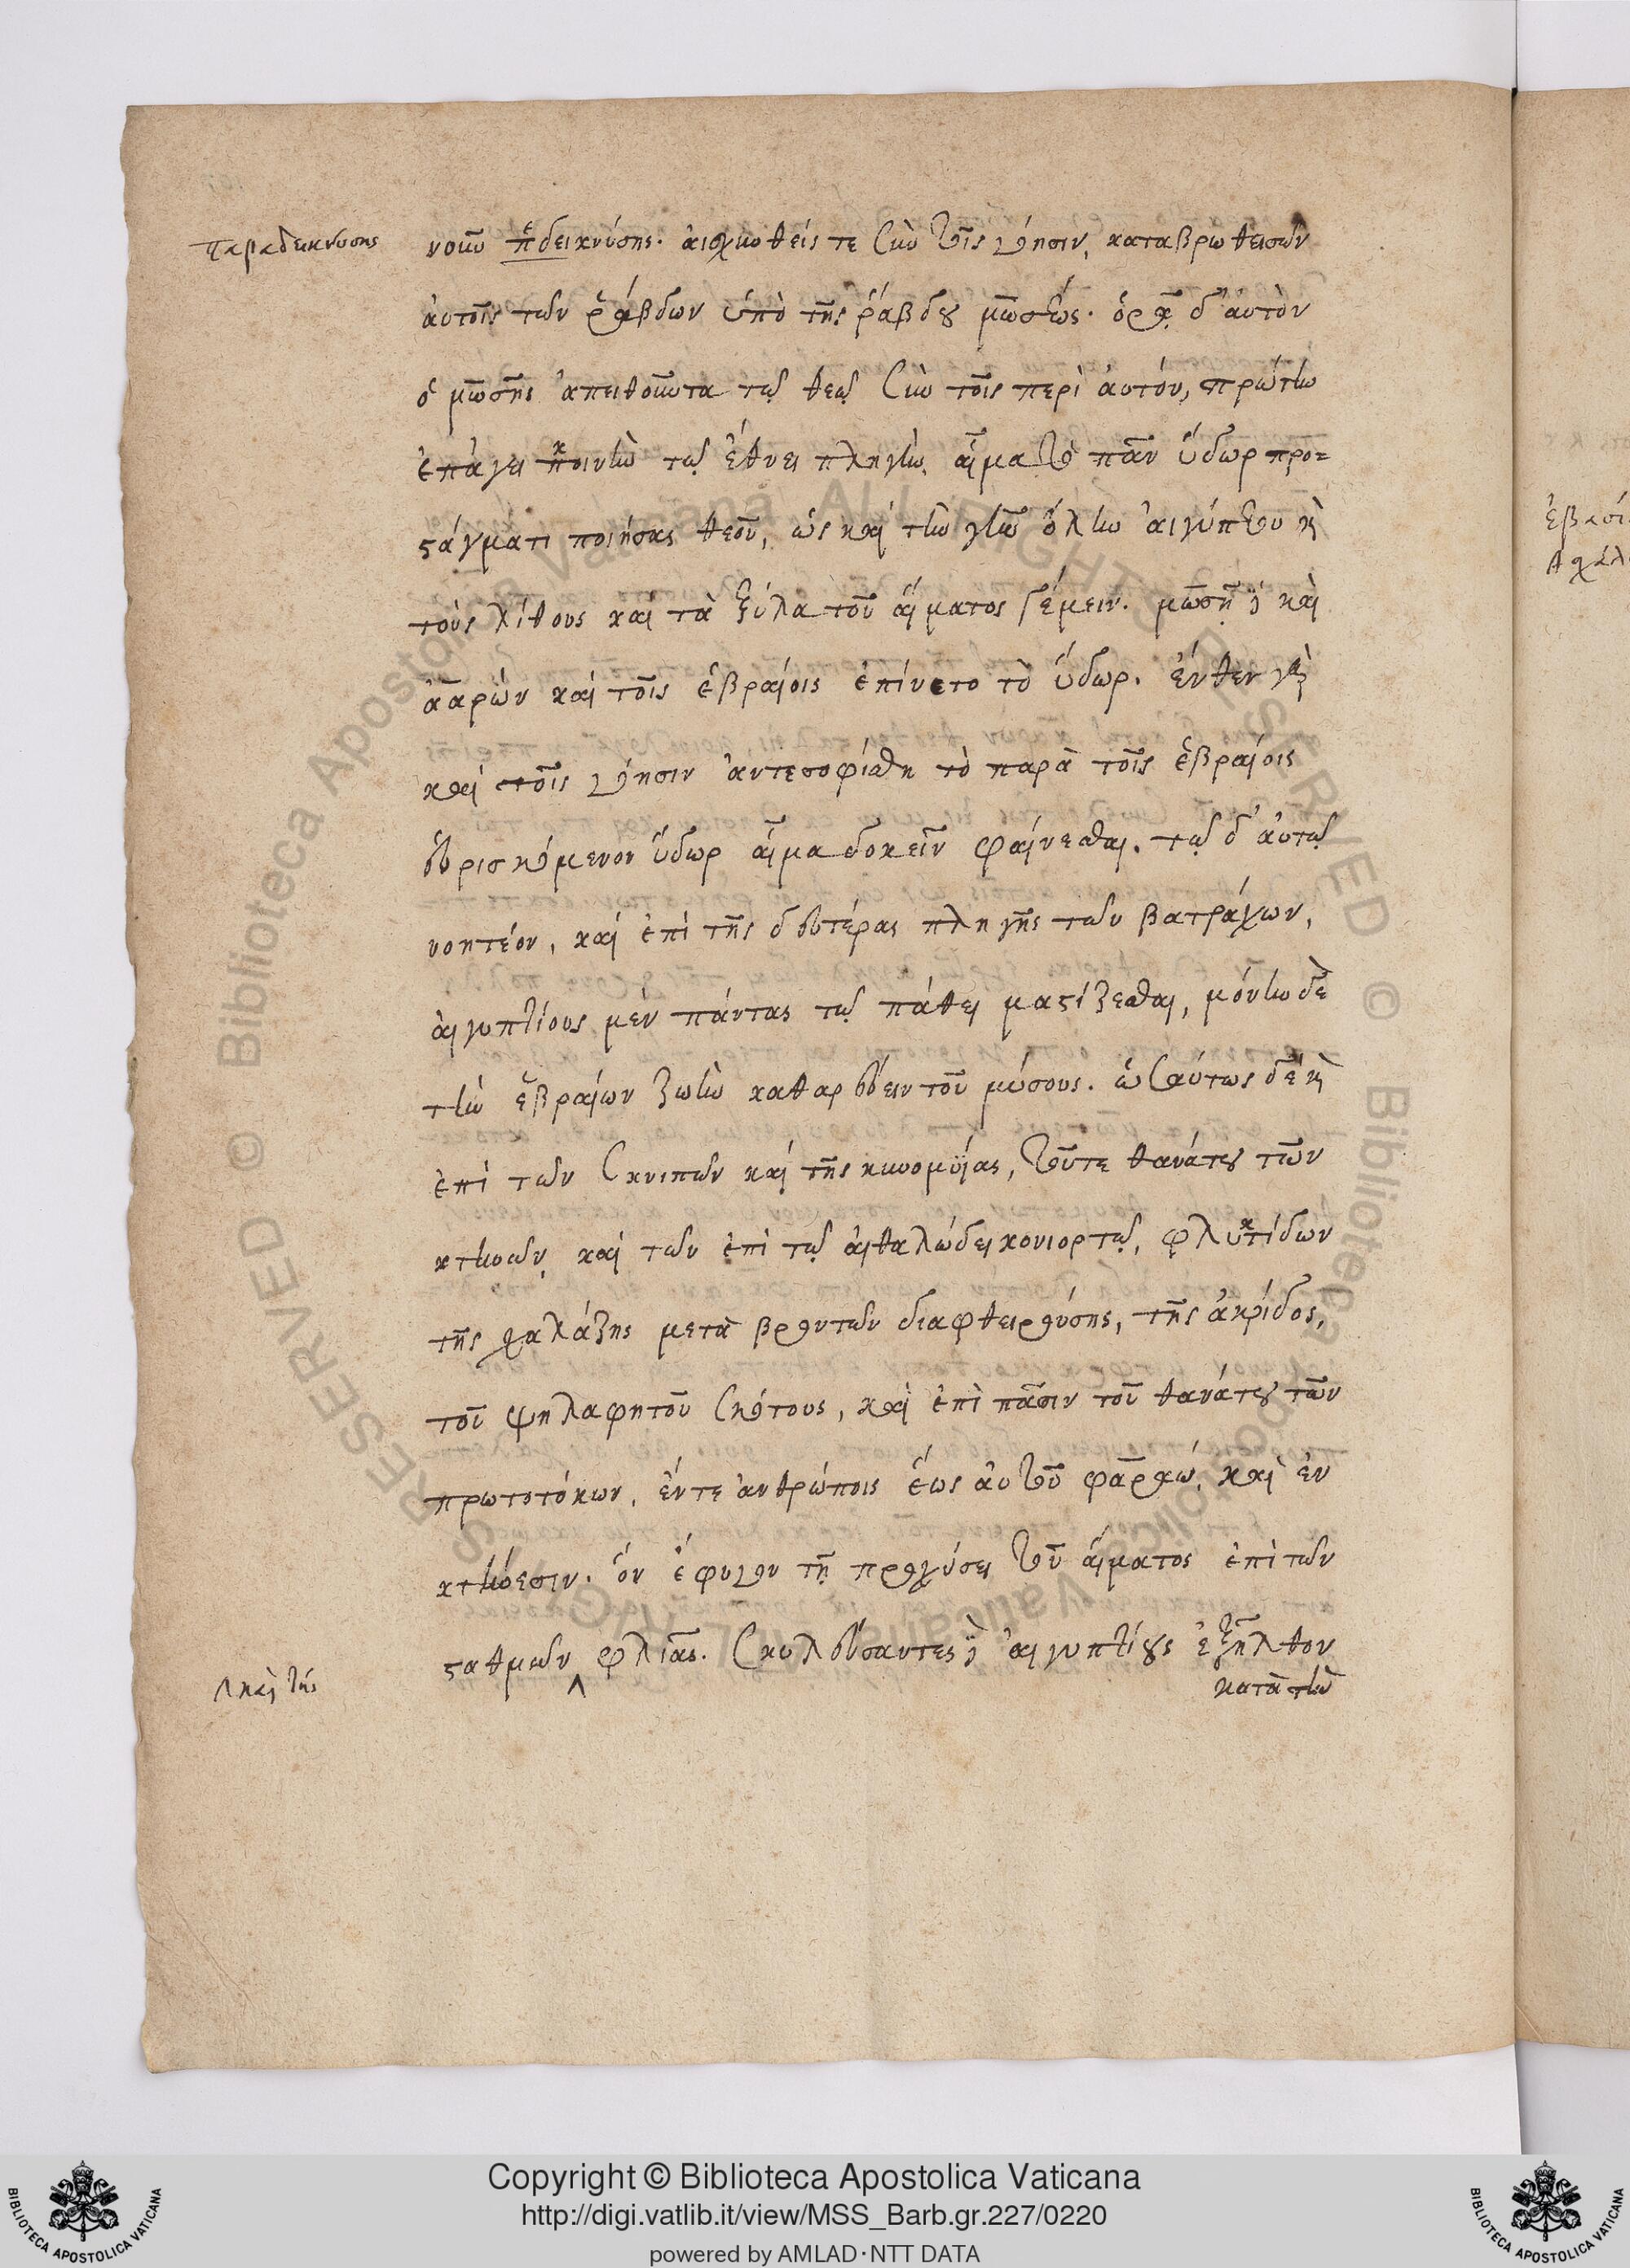 παραδεικνύσης
νουῦ παραδεικνύσης. αἰσχυνθείς τε σὺν τοῖς γόησιν, καταβρωθεισῶν
αὐτοῖς τῶν ῥάβδων ὑπὸ τῆς ῥάβδου μωσέως. ὁρᾷ δ' αὐτὸν
ὁ μωσῆς ἀπειθοῦντα τῷ θεῷ σὺν τοῖς περὶ αὐτόν, πρώτην
ἐπάγει κοινὴν τῷ ἔθνει πληγὴν, αἷμα τὸ πᾶν ὕδωρ προ=
στάγματι ποιήσας θεοῦ, ὡς καὶ τὴν γῆν ὅλην αἰγύπτου καὶ
τοὺς λίθους καὶ τὰ ξύλα τοῦ αἵματος γέμειν. μωσῆ δὲ καὶ
ἀαρὼν καὶ τοῖς ἑβραίοις ἐπίνετο τὸ ὕδωρ. ἔνθεν γὰρ
καὶ τοῖς γόησιν ἀντεσοφίσθη τὸ παρὰ τοῖς ἑβραίοις
εὑρισκόμενον ὕδωρ αἷμα δοκεῖν φαίνεσθαι. τῷ δ' αὐτῷ
νοητέον, καὶ ἐπὶ τῆς δευτέρας πληγῆς τῶν βατράχων,
αἰγυπτίους μὲν πάντας τῷ πάθει μαστίζεσθαι, μόνην δὲ
τὴν ἑβραίων ζωὴν καθαρεύειν τοῦ μύσους. ὡσαύτως δὲ καὶ
ἐπὶ τῶν σκνιπῶν καὶ τῆς κυνομυίας, τοῦτε θανάτου τῶν
κτηνῶν, καὶ τῶν ἐπὶ τῷ αἰθαλώδει κονιορτῷ, φλυκτίδων
τῆς χαλάζης μετὰ βροντῶν διαφθειρούσης, τῆς ἀκρίδος,
τοῦ ψηλαφητοῦ σκότους, καὶ ἐπὶ πᾶσιν τοῦ θανάτου τῶν
πρωτοτόκων, ἔντε ἀνθρώποις ἕως αὐτοῦ φαραώ, καὶ ἐν
κτήνεσιν. ὃν ἔφυγον τῇ προσχύσει τοῦ αἵματος ἐπὶ τῶν
σταθμῶν ‸ φλιᾶς. σκυλεύσαντες δὲ αἰγυπτίους ἐξῆλθον
‸ καὶ τῆς
κατὰ τὴν
ἐβασί
Copyright © Biblioteca Apostolica Vaticana
http://digi.vatlib.it/view/MSS_Barb.gr.227/0220
powered by AMLAD·NTT DATA
BIBLIOTECA APOSTOLICA VATICANA
BIBLIOTECA APOSTOLICA VATICANA
© Biblioteca Apostolica Vaticana ALL RIGHTS RESERVED
© Biblioteca Apostolica Vaticana ALL RIGHTS RESERVED